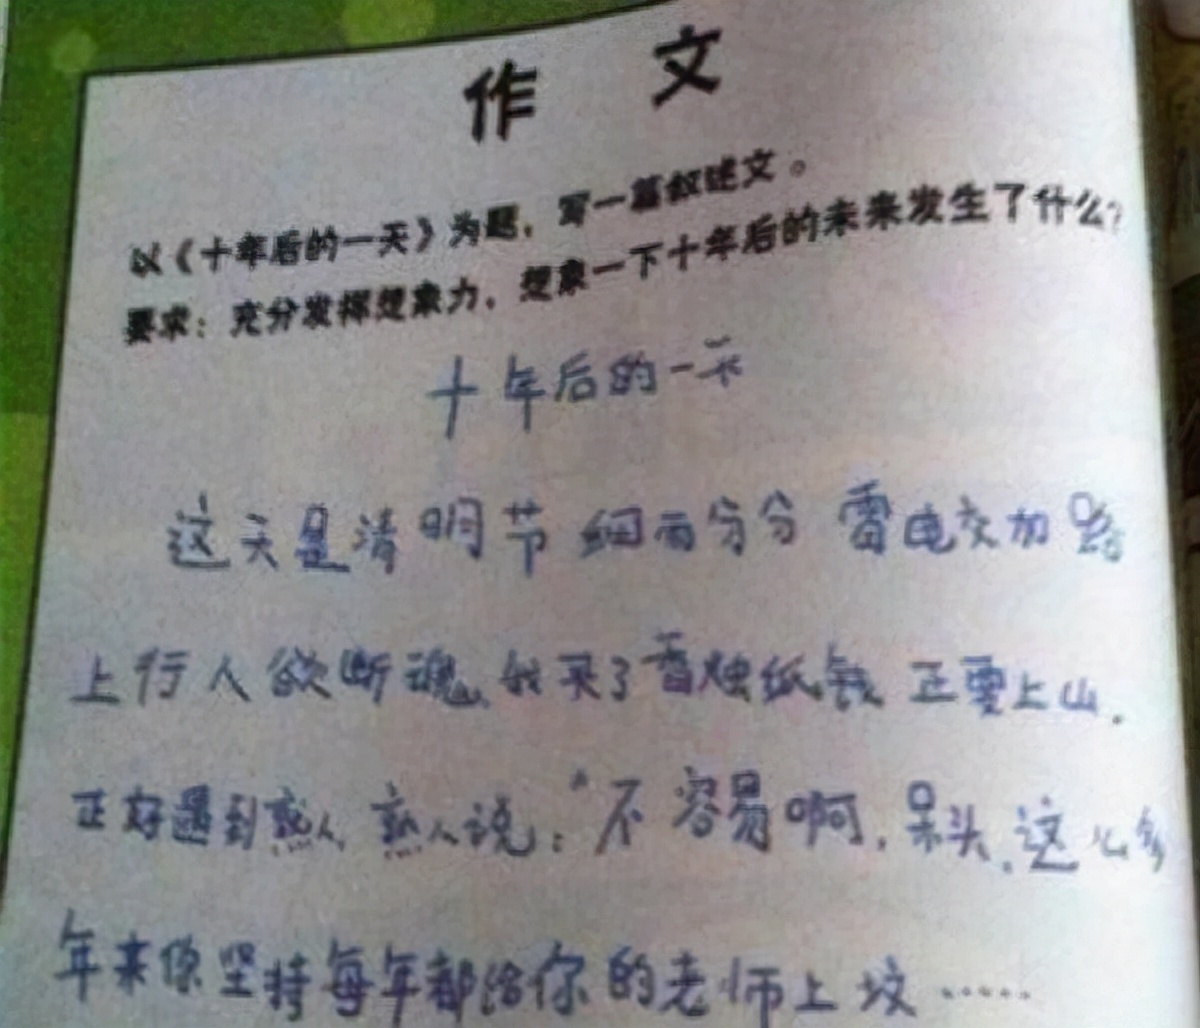 作 文
以《十年后的一天》为题，写一篇叙述文。
要求：充分发挥想象力，想象一下十年后的未来发生了什么？
十年后的一天
这天是清明节 细雨分分 雷电交加 路
上行人欲断魂，我买了香烛纸钱 正要上山.
正好遇到熟人，熟人说："不容易啊，呆头，这么多
年来你坚持每年都给你的老师上坟……